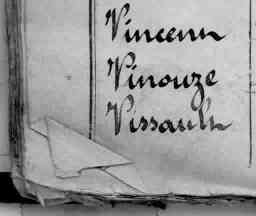 Vincenn
Vinouze
Vissault